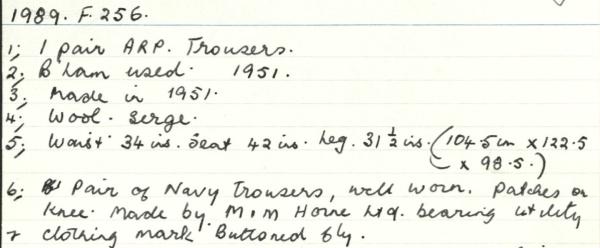 1989. F. 256.
1; 1 pair ARP. Trousers.
2; B'ham used. 1951.
3; Made in 1951.
4; Wool. Serge.
5; Waist 34 ins. Seat 42 ins. Leg. 31 ½ ins. (104.5 cm x 122.5
x 98.5.)
6; Pair of Navy Trousers, well worn. Patches on
Knee. Made by M.I.M Horne Ltd. bearing utility
clothing mark. Buttoned fly.